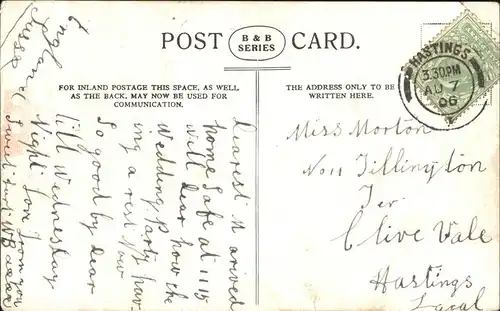 POST B & B SERIES CARD.
FOR INLAND POSTAGE THIS SPACE, AS WELL
AS THE BACK, MAY NOW BE USED FOR
COMMUNICATION.
THE ADDRESS ONLY TO BE
WRITTEN HERE.
HASTINGS
3.30PM
AU 7
06
England
Dearest M arrived
home safe at 11 15
Well dear how the
Wedding party hav
ing a rest Now
So good by dear
till Wednesday
Night Love from your
Sweet
Miss Morton
No 11 Tillington
Ter
Clive Vale
Hastings
Local